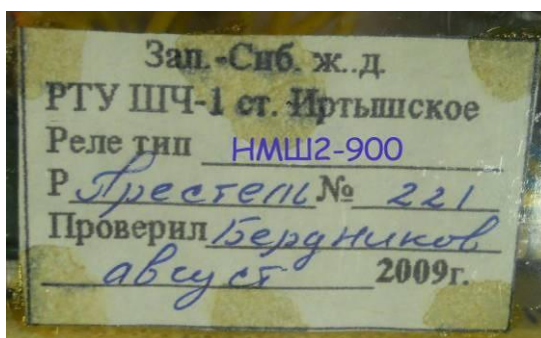 Зап.-Сиб. ж..д.
РТУ ШЧ-1 ст. Иртышское
Реле тип НМШ2-900
Р Престель № 221
Проверил Бердников
август 2009г.